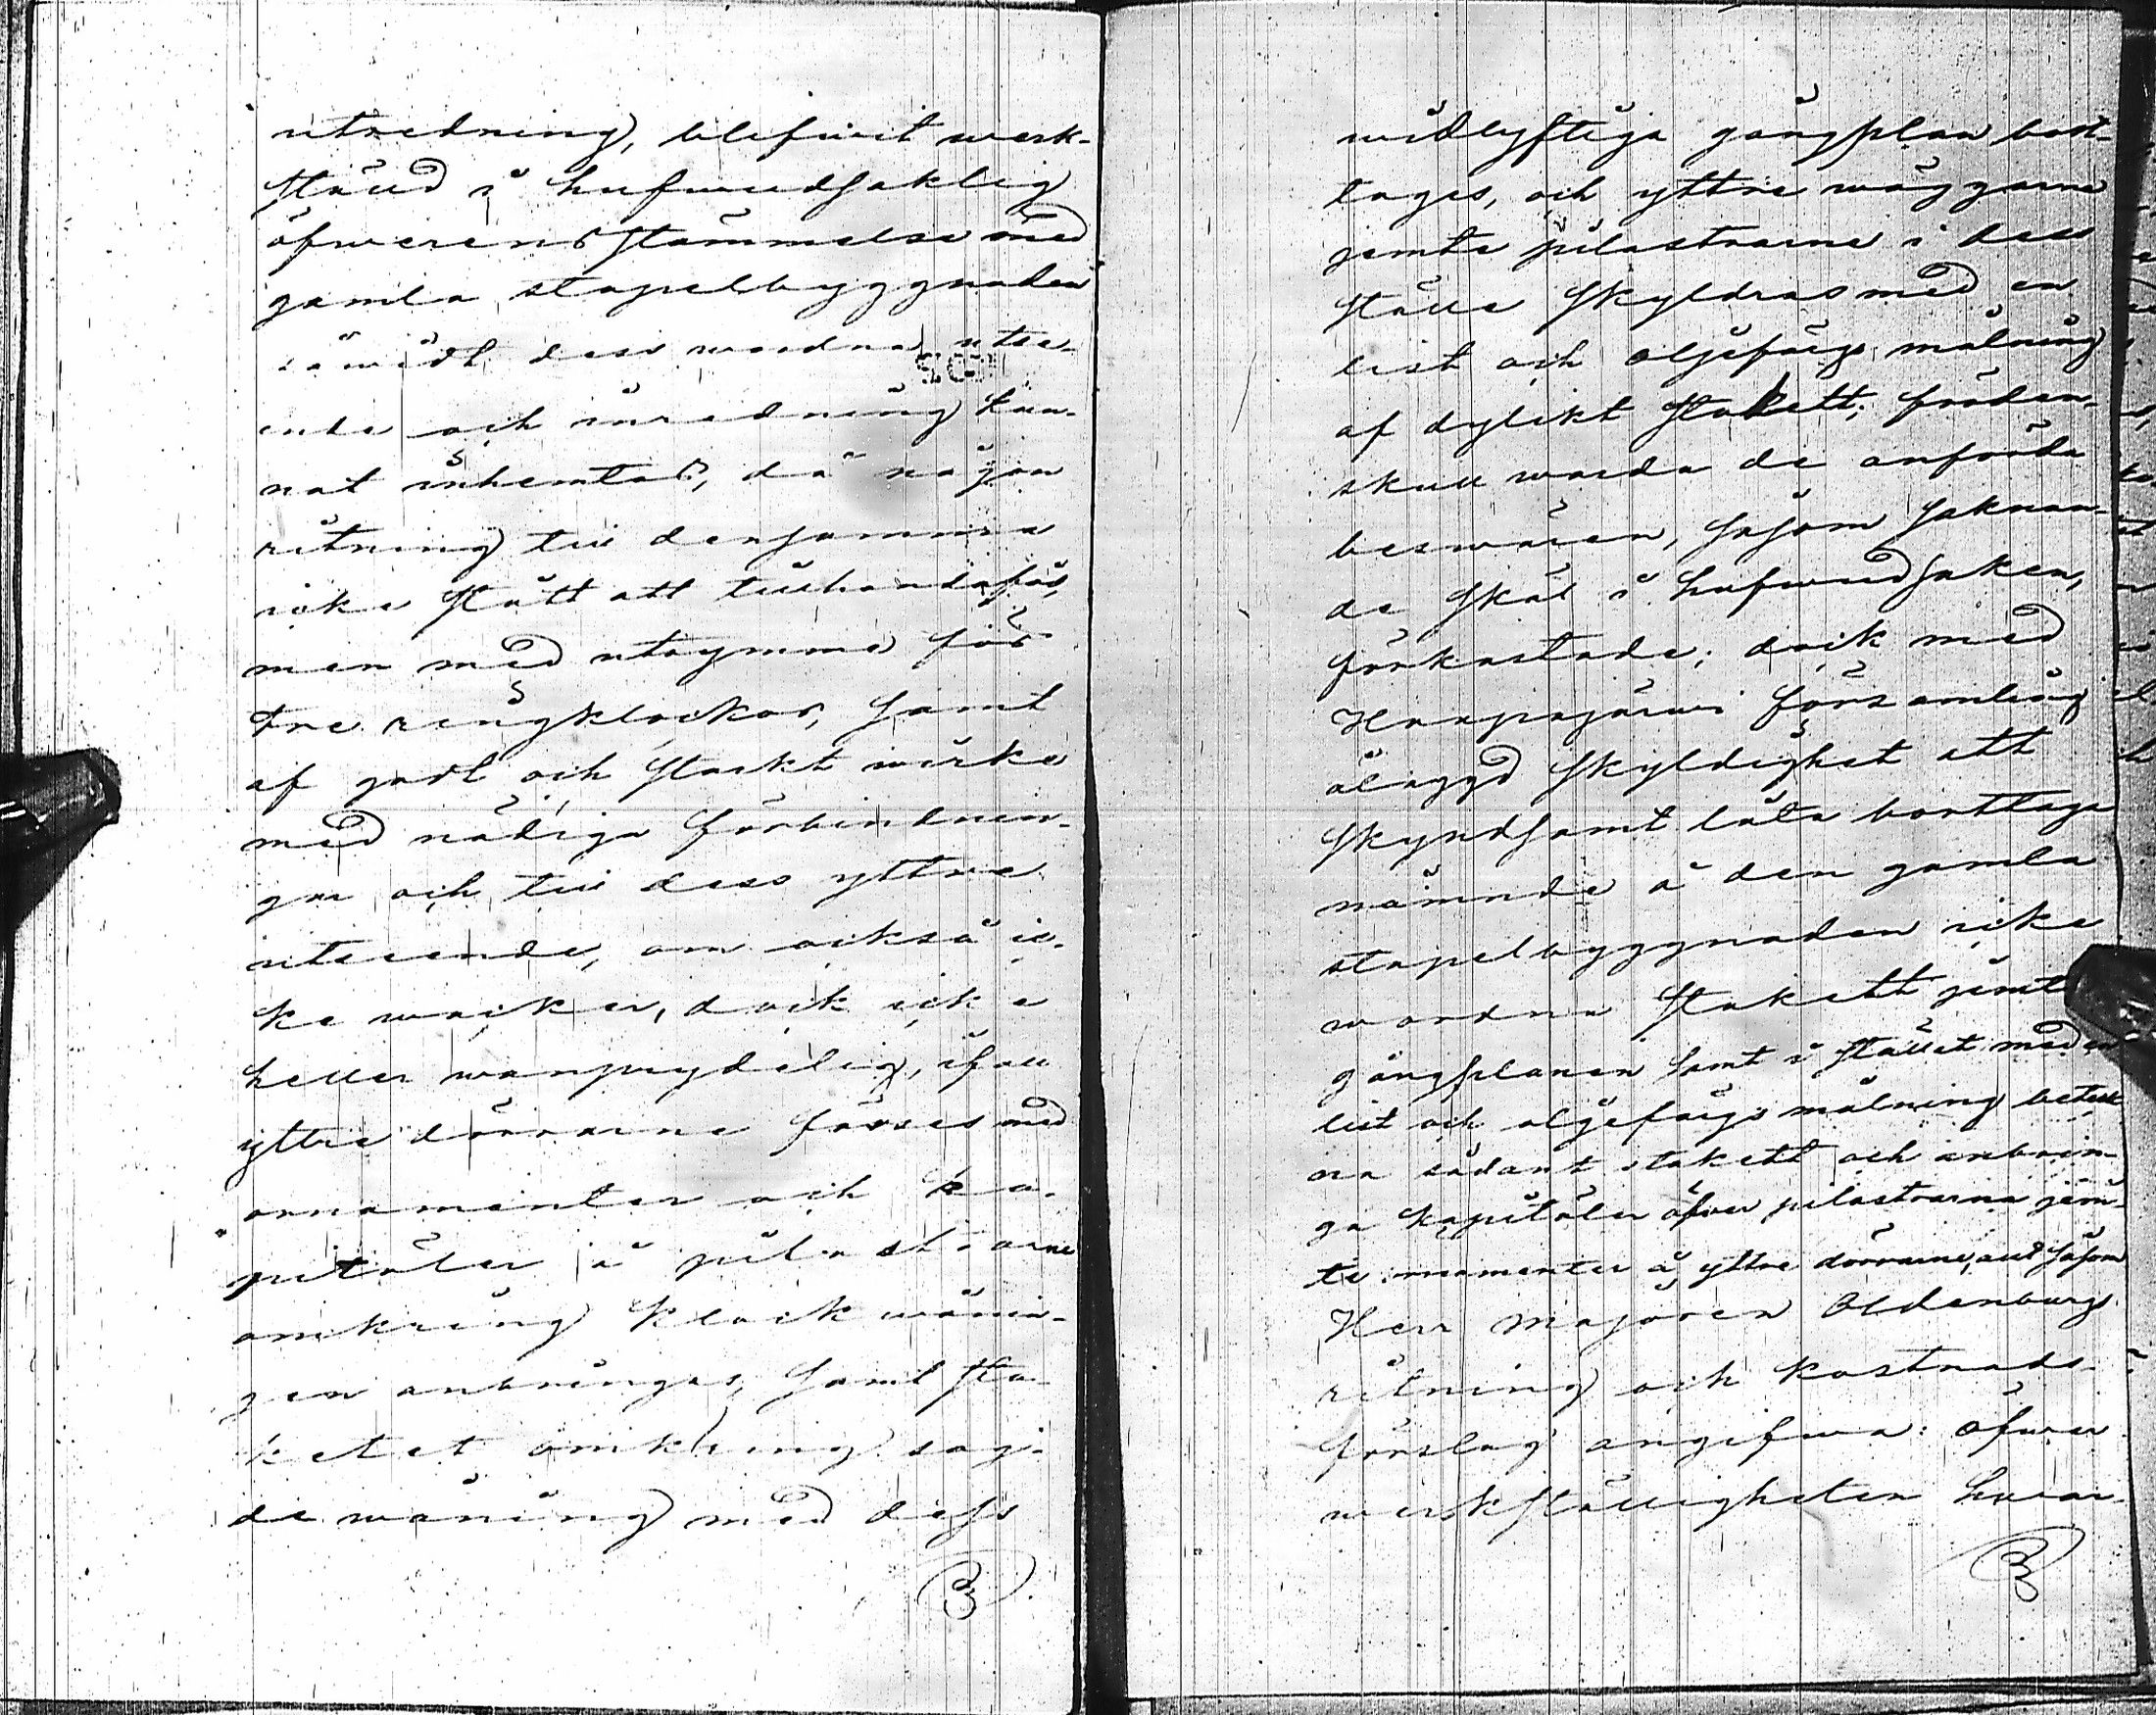 utredning, blifwit werk-
ställd i hufwudsaklig
öfwerensstämmelse med
gamla stapelbyggnaden
såwidt dess wordna utse-
ende och inredning kun-
nat inhemtas, då någon
ritning till densamma
icke stått att tillhandafås,
men med utrymme för
tre ringklockor, samt
af godt och starkt wirke
med nödiga förbindnin-
gar och till dess yttre
utseende, om också ic-
ke wacker, dock icke
heller wanprydelig, ifall
yttre dörrarne förses med
ornamenter och ka-
pitäler å pilastrarne
omkring klockwånin-
gen anbringas, samt sta-
ketet omkring sag-
de wåning med dess
widlyftiga gångplan bort-
tages, och yttre wäggarne
jemte pilastrarne i dess
ställe skyldras med en
list och oljefärgs målning
af dylikt stakett; fördenskull
warda de anförda
beswären, såsom saknan-
de skäl i hufwudsaken,
förkastade; dock med
Haapajärwi församling
ålaggd skyldighet att
skyndsamt låta borttaga
nämnde å den gamla
stapelbyggnaden icke
wordna stakett jemte
gångplanen samt i stället med en
list och oljefärgs målning beteck-
na sådant stakett och anbrin-
ga kapitäler öfwer pilastrarna jem-
te ornamenter å yttre dörrarne, allt såsom
Herr Majoren Oldenburgs
ritning och kostnads-
förslag angifwa: öfwer
werkställigheten hwar-